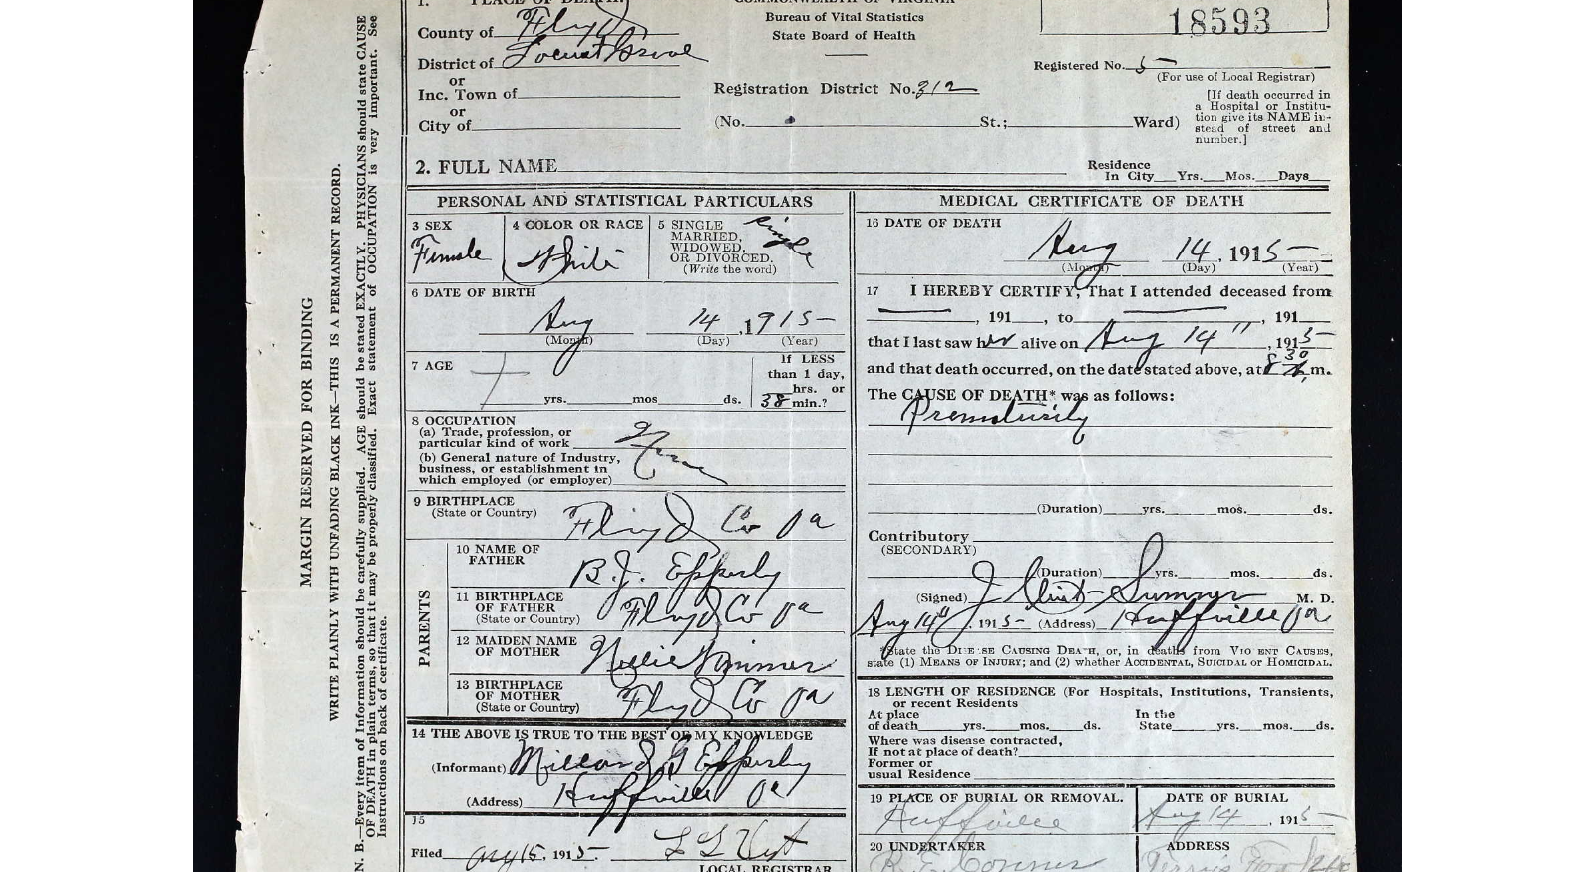 1. PLACE OF DEATH. COMMONWEALTH OF VIRGINIA
County of Floyd
Bureau of Vital Statistics
State Board of Health
18593
District of Locust Grove
Registered No. 5
(For use of Local Registrar)
or
Inc. Town of
Registration District No. 312
[If death occurred in
a Hospital or Institu-
tion give its NAME in-
stead of street and
number.]
or
City of
(No. St.; Ward)
2. FULL NAME
Residence
In City Yrs. Mos. Days
MARGIN RESERVED FOR BINDING
WRITE PLAINLY WITH UNFADING BLACK INK—THIS IS A PERMANENT RECORD.
N. B.—Every item of Information should be carefully supplied. AGE should be stated EXACTLY. PHYSICIANS should state CAUSE
OF DEATH in plain terms, so that it may be properly classified. Exact statement of OCCUPATION is very important. See
Instructions on back of certificate.
PERSONAL AND STATISTICAL PARTICULARS
3 SEX
Female
4 COLOR OR RACE
White
5 SINGLE
MARRIED,
WIDOWED,
OR DIVORCED.
(Write the word)
Single
6 DATE OF BIRTH
Aug 14, 1915
(Month) (Day) (Year)
7 AGE
yrs. mos ds.
If LESS
than 1 day,
hrs. or
38 min.?
8 OCCUPATION
(a) Trade, profession, or
particular kind of work
(b) General nature of Industry,
business, or establishment in
which employed (or employer)
9 BIRTHPLACE
(State or Country) Floyd Co Va
PARENTS
10 NAME OF
FATHER B. J. Epperly
11 BIRTHPLACE
OF FATHER
(State or Country) Floyd Co Va
12 MAIDEN NAME
OF MOTHER Nellie Wimmer
13 BIRTHPLACE
OF MOTHER
(State or Country) Floyd Co Va
14 THE ABOVE IS TRUE TO THE BEST OF MY KNOWLEDGE
(Informant) Millard G Epperly
(Address) Huffville Va
15
Filed Aug 15, 1915 L L
LOCAL REGISTRAR
MEDICAL CERTIFICATE OF DEATH
16 DATE OF DEATH
Aug 14, 1915
(Month) (Day) (Year)
17 I HEREBY CERTIFY, That I attended deceased from
, 191 , to , 191
that I last saw her alive on Aug 14", 1915
and that death occurred, on the date stated above, at 8 30 m.
The CAUSE OF DEATH* was as follows:
Prematurity
(Duration) yrs. mos. ds.
Contributory
(SECONDARY)
(Duration) yrs. mos. ds.
(Signed) J Sumner M. D.
Aug 14", 1915 (Address) Huffville Va
*State the DISEASE CAUSING DEATH, or, in deaths from VIOLENT CAUSES,
state (1) MEANS OF INJURY; and (2) whether ACCIDENTAL, SUICIDAL or HOMICIDAL.
18 LENGTH OF RESIDENCE (For Hospitals, Institutions, Transients,
or recent Residents
At place
of death yrs. mos. ds.
In the
State yrs. mos. ds.
Where was disease contracted,
If not at place of death?
Former or
usual Residence
19 PLACE OF BURIAL OR REMOVAL.
Huffville
DATE OF BURIAL
Aug 14, 1915
20 UNDERTAKER
R. E. Conner
ADDRESS